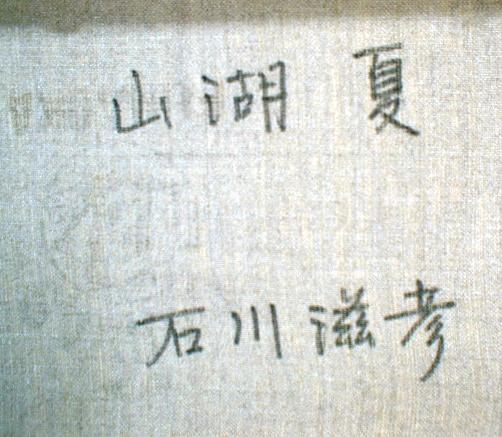 山湖 夏
石川滋彦